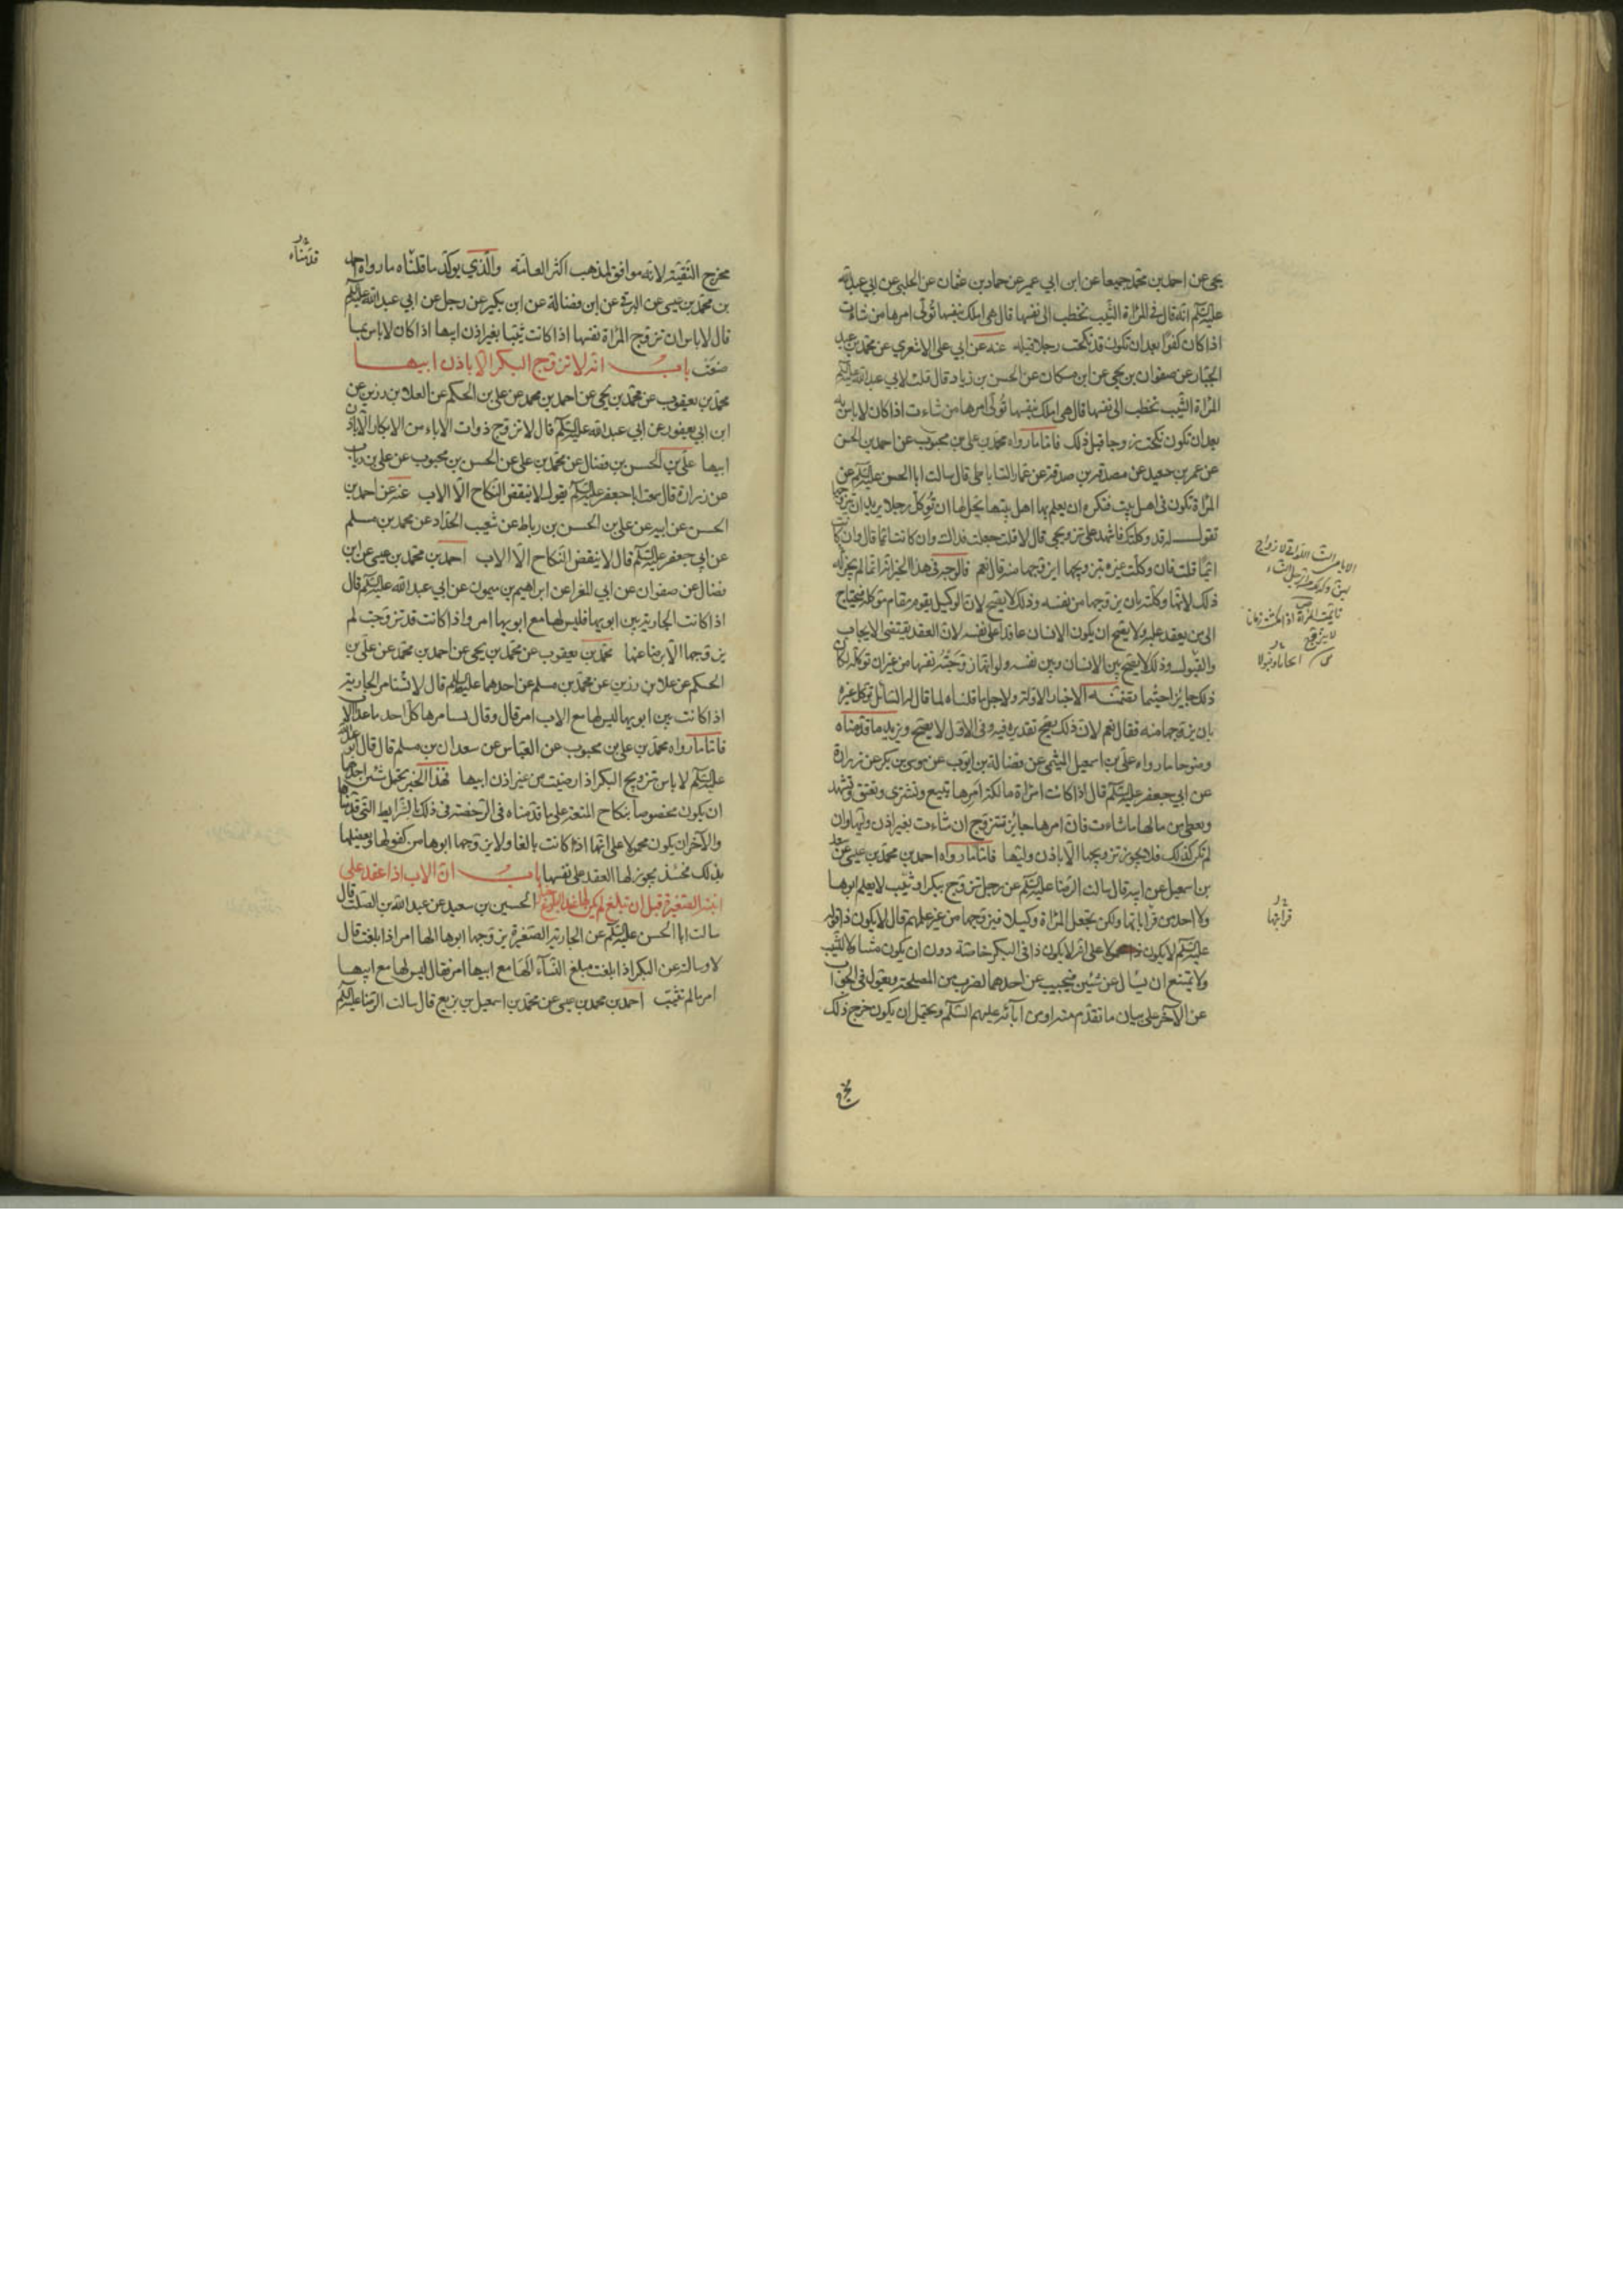 يحيى عن احمد بن محمد جميعا عن ابن ابي عمير عن حماد بن عثمان عن الحلبي عن ابي عبد الله
عليه السلم انه قال في المراة الثيب تخطب الى نفسها قال هي املك بنفسها تولى امرها من شاءت
اذا كان كفوا بعد ان تكون قد نكحت رجلا قبله عنه عن ابي علي الاشعري عن محمد بن عبد
الجبار عن صفوان بن يحيى عن ابن مسكان عن الحسن بن زياد قال قلت لابي عبد الله عليه السلم
المراة الثيب تخطب الى نفسها قال هي املك بنفسها تولى امرها من شاءت اذا كان لا باس به
بعد ان تكون نكحت زوجا قبل ذلك فاما ما رواه محمد بن علي بن محبوب عن احمد بن الحسن
عن عمرو بن سعيد عن مصدق بن صدقة عن عمار الساباطي قال سالت ابا الحسن عليه السلم عن
المراة تكون في اهل بيت فتكره ان يعلم بها اهل بيتها يحل لها ان توكل رجلا يريد ان يتزوجها
تقول له قد وكلتك فاشهد على تزويجي قال لا قلت جعلت فداك وان كانت ايما قال وان كانت
ايما قلت فان وكلت غيره بتزويجها ايزوجها منه قال نعم فالوجه في هذا الخبر انه انما لم يجز له
ذلك لانها وكلته بان يزوجها من نفسه وذلك لا يصح لان الوكيل يقوم مقام موكله فيحتاج
الى من يعقد عليه ولا يصح ان يكون الانسان عاقدا على نفسه لان العقد يقتضى الايجاب
والقبول وذلك لا يصح بين الانسان وبين نفسه ولو انها زوجته نفسها من غير ان توكله لكان
ذلك جايزا حسبما تضمنته الاخبار الاولة ولاجل ما قلناه لما قال له السائل توكل غيره
بان يزوجها منه فقال نعم لان ذلك يصح تقديره فيه وفى الاول لا يصح ويزيد ما قدمناه
وضوحا ما رواه علي بن اسمعيل الميثمي عن فضالة بن ايوب عن موسى بن بكر عن زرارة
عن ابي جعفر عليه السلم قال اذا كانت امراة مالكة امرها تبيع وتشترى وتعتق وتشهد
وتعطى من مالها ما شاءت فان امرها جايز تتزوج ان شاءت بغير اذن وليها وان
لم تكن كذلك فلا يجوز تزويجها الا باذن وليها فاما ما رواه احمد بن محمد بن عيسى عن سعد
بن اسمعيل عن ابيه قال سالت الرضا عليه السلم عن رجل تزوج ببكر او ثيب لا يعلم ابوها
ولا احد من قراباتها ولكن تجعل المراة وكيلا فيزوجها من غير علمهم قال لا يكون ذا فقوله
عليه السلم لا يكون ذا محمولا على انه لا يكون ذا فى البكر خاصة دون ان يكون متناولا للثيب
ولا يمتنع ان يسال عن شيئين فيجيب عن احدهما لضرب من المصلحة ويعول فى الجواب
عن الآخر على بيان ما تقدم منه او من آبائه عليهم السلم ويحتمل ان يكون خرج ذلك
لا يتزوج
ايجابا وقبولا
قرابتها
مخرج
مخرج التقية لانه موافق لمذهب اكثر العامة والذي يؤكد ما قلناه ما رواه احمد
بن محمد بن عيسى عن البرقي عن ابن فضالة عن ابن بكير عن رجل عن ابي عبد الله عليه السلم
قال لا باس ان تزوج المراة نفسها اذا كانت ثيبا بغير اذن ابيها اذا كان لا باس بما
صنعت باب انه لا تزوج البكر الا باذن ابيها
محمد بن يعقوب عن محمد بن يحيى عن احمد بن محمد عن علي بن الحكم عن العلا بن رزين عن
ابن ابي يعفور عن ابي عبد الله عليه السلم قال لا تزوج ذوات الاباء من الابكار الا باذن
ابيها علي بن الحسن بن فضال عن محمد بن علي عن الحسن بن محبوب عن علي بن رياب
عن زرارة قال سمعت ابا جعفر عليه السلم يقول لا ينقض النكاح الا الاب عنه عن احمد بن
الحسن عن ابيه عن علي بن الحسن بن رباط عن شعيب الحداد عن محمد بن مسلم
عن ابي جعفر عليه السلم قال لا ينقض النكاح الا الاب احمد بن محمد بن عيسى عن ابن
فضال عن صفوان عن ابي المغرا عن ابراهيم بن ميمون عن ابي عبد الله عليه السلم قال
اذا كانت الجارية بين ابويها فليس لها مع ابويها امر واذا كانت قد تزوجت لم
يزوجها الا برضا منها محمد بن يعقوب عن محمد بن يحيى عن احمد بن محمد عن علي بن
الحكم عن علا بن رزين عن محمد بن مسلم عن احدهما عليهما السلم قال لا تستامر الجارية
اذا كانت بين ابويها ليس لها مع الاب امر قال وقال يستامرها كل احد ما عدا الاب
فاما ما رواه محمد بن علي بن محبوب عن العباس عن سعدان بن مسلم قال قال ابو عبد الله
عليه السلم لا باس بتزويج البكر اذا رضيت من غير اذن ابيها فهذا الخبر يحتمل شيئين احدهما
ان يكون مخصوصا بنكاح المتعة على ما قدمناه فى الرخصة فى ذلك بالشرايط التي قدمناها
والآخر ان يكون محمولا على انها اذا كانت بالغا ولا يزوجها ابوها من كفو لها ويعضلها
بذلك فحينئذ يجوز لها العقد على نفسها باب ان الاب اذا عقد على
ابنته الصغيرة قبل ان تبلغ لم يكن لها عند البلوغ خيار الحسين بن سعيد عن عبد الله بن الصلت قال
سالت ابا الحسن عليه السلم عن الجارية الصغيرة يزوجها ابوها الها امر اذا بلغت قال
لا وسالته عن البكر اذا بلغت مبلغ النساء الها مع ابيها امر فقال ليس لها مع ابيها
امر ما لم تثيب احمد بن محمد بن عيسى عن محمد بن اسمعيل بن بزيع قال سالت الرضا عليه السلم
قدمناه